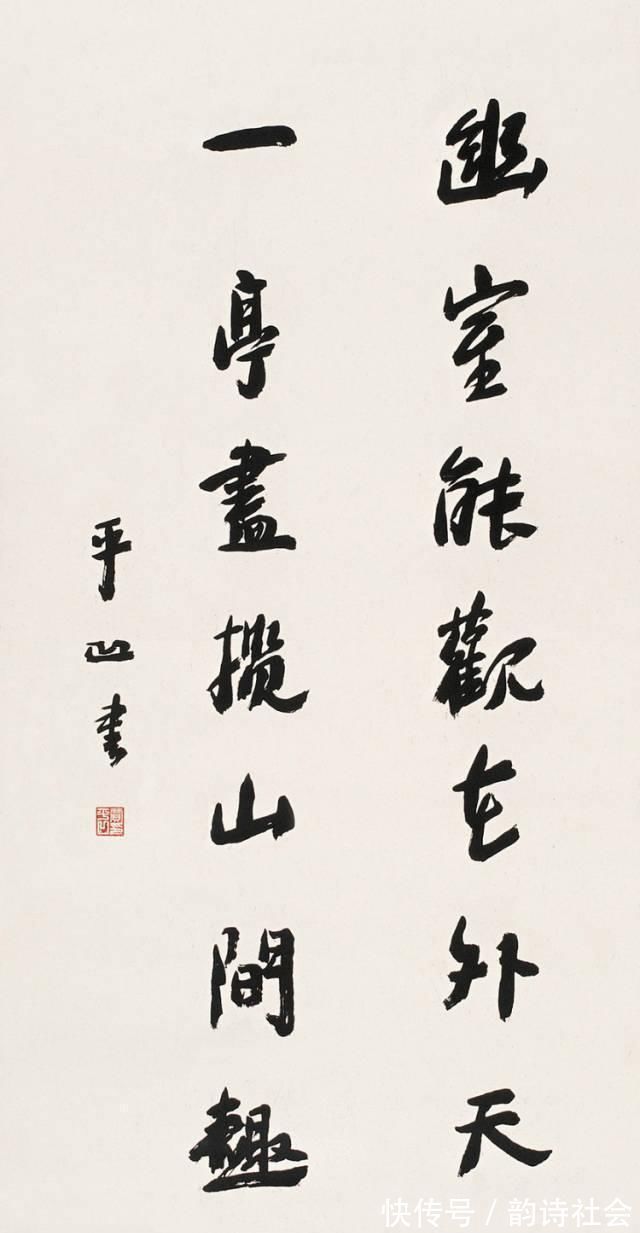 幽室能觀世外天
一亭盡攬山間趣
平凹書
快传号/韵诗社会